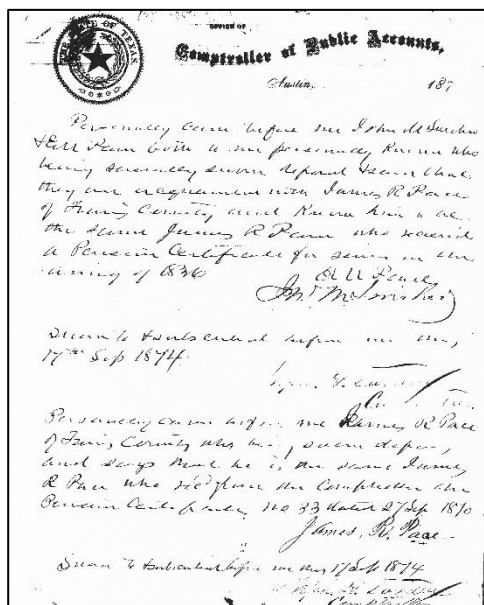 THE STATE OF TEXAS
OFFICE OF
Comptroller of Public Accounts,
Austin, 187
Personally came before me John M
Pace both to me personally known who
being severally sworn depose & say that
they are acquainted with James R Pace
of Travis County and know him to be
the same James R Pace who received
a Pension Certificate for service in the
army of 1836
Pace
Jno. M.
Sworn to & subscribed before me this
17th Sep 1874
Personally came before me James R Pace
of Travis County who being sworn deposes
and says that he is the same James
R Pace who rec'd from the Comptroller the
Pension Certificate No 33 dated 27 Sep 1870
James. R. Pace
Sworn to & subscribed before me this 17 Sep 1874